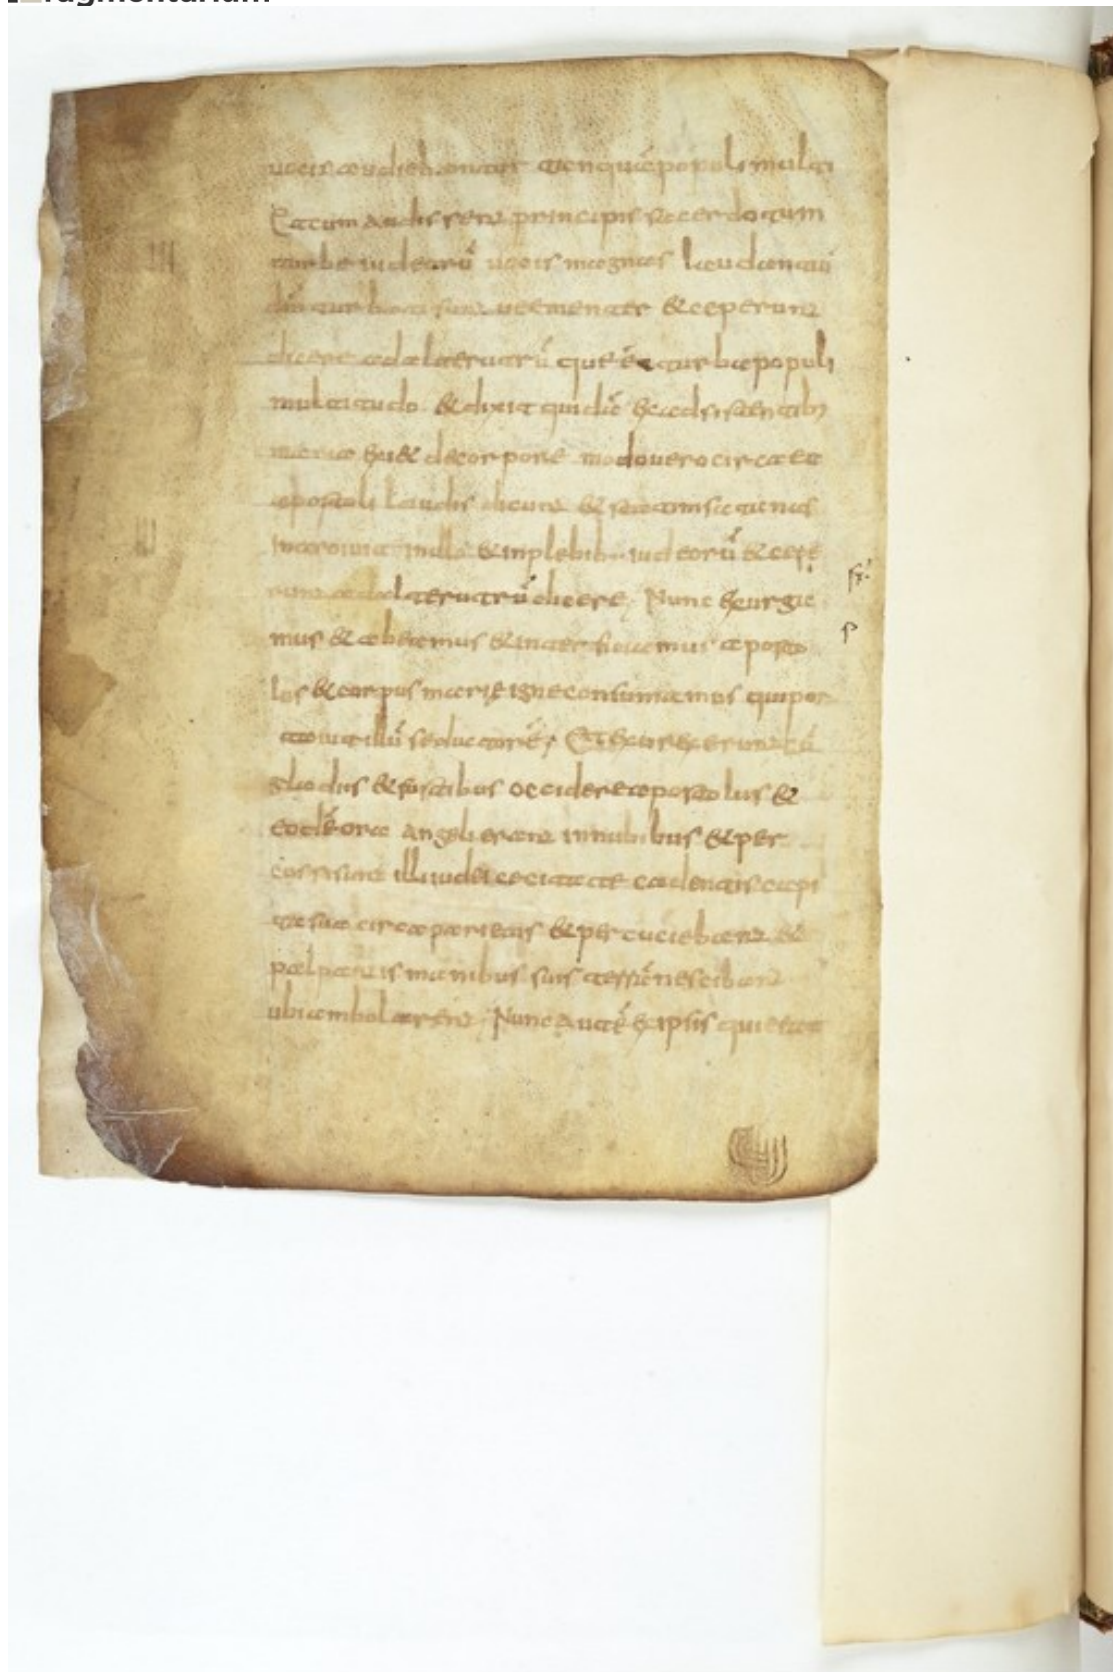 uocis audiebantur tanquā populi multi
Et cum audissent principis sacerdotum
turbe iudeorū uocis magnas laudantiū
dm̄ turbati sunt uementer & ceperunt
dicere ad alterutrū que ē turba populi
multitudo & dixit quidā ex adsistentibꝫ
maria exi& de corpore modo uero circa ea
apostoli laudis dicunt & statim satanas
introiuit in illis & in plebib iudeorū & cepe
runt ad alterutrū dicere; Nunc exurga
mus & abeamus & interficiamus aposto
los & corpus marie igne consumamus qui por
tauit illū seductorē; Et exurexerunt cū
gladiis & fustibus occidere apostolus &
ea hora angeli erant in nubibus & per
cossi sunt illi iudei cecitate cadentis capi
ta sua circa parietis & percuciebant &
palpantis manibus suis nesciebant
ubi ambolarent; Nunc autē ex ipsis qui